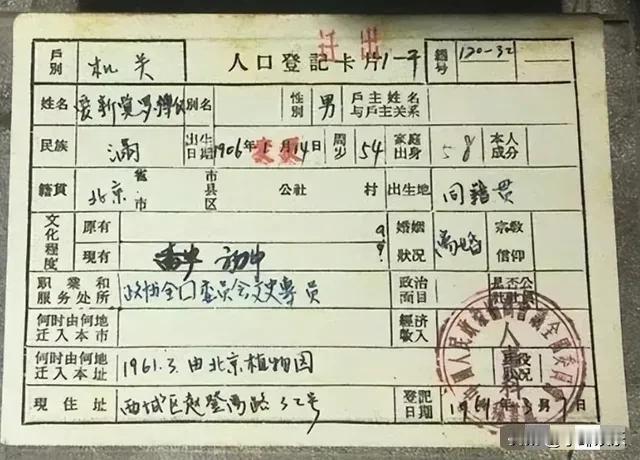 迁出
戶別 机关 人口登記卡片1-子 編号 120-32
姓名 爱新覚罗溥仪 別名 性別 男 戶主姓名与戶主关系
民族 滿 出生日期 1906年1月14日 变更 周岁 54 家庭出身 本人成分
籍貫 北京 省市 市县区 公社 村 出生地 同籍贯
文化程度 原有 婚姻狀况 离婚 宗敎信仰
現有 初中
职業和服务处所 政协全国委員会文史專員 政治面目 是否公社社員
何时由何地迁入本市 經济收入
何时由何地迁入本址 1961.3.由北京植物园
現住址 西城区赵登禹路32号 登記日期 1961年3月7日